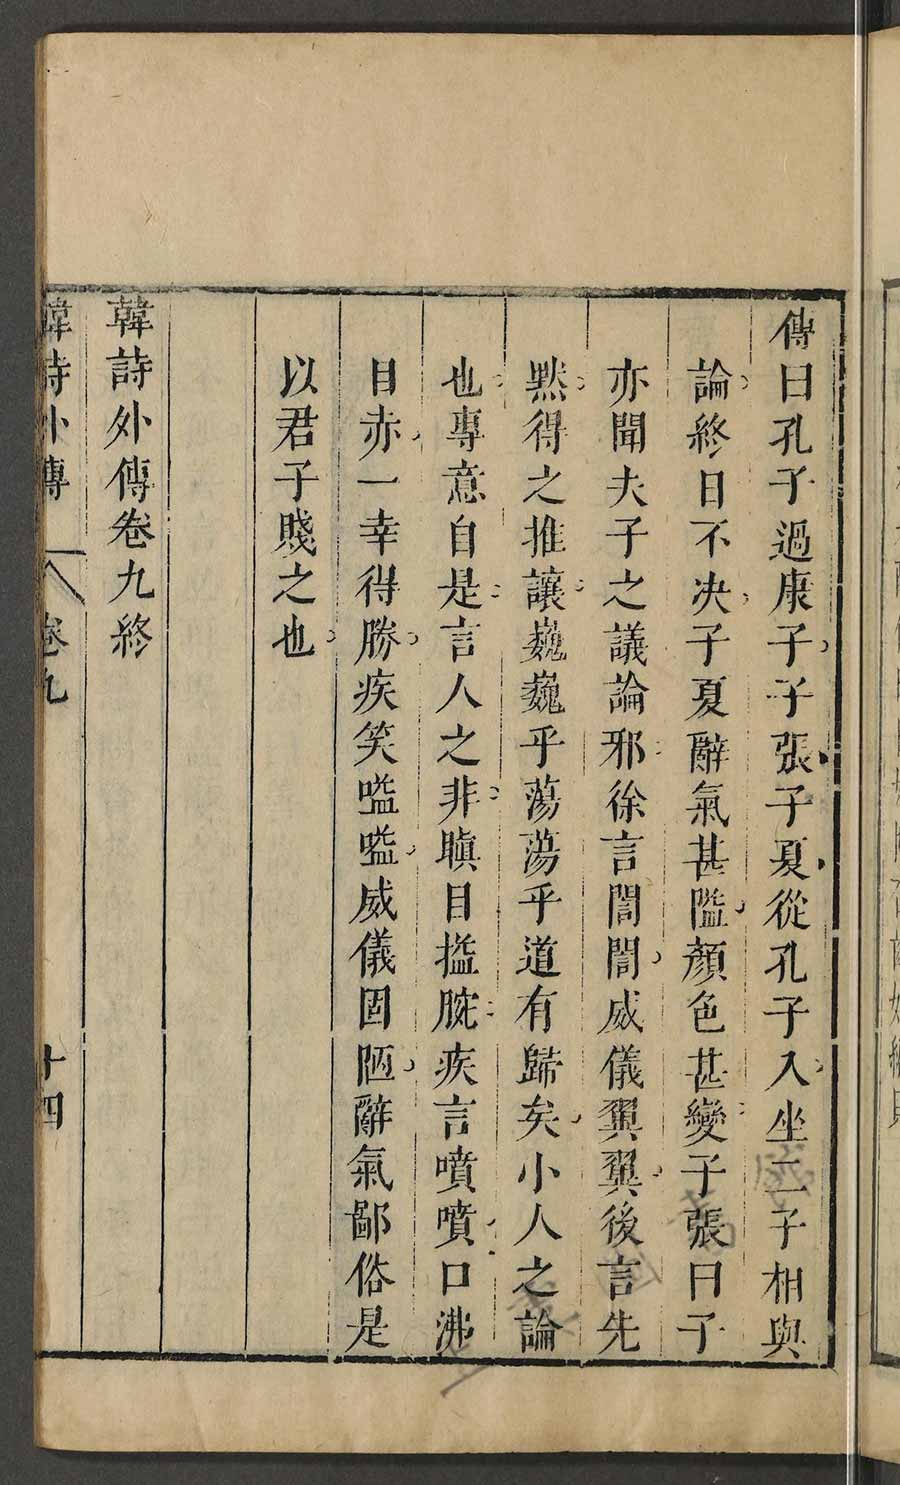 傳曰孔子過康子子張子夏從孔子入坐二子相與
論終日不決子夏辭氣甚隘顏色甚變子張曰子
亦聞夫子之議論邪徐言誾誾威儀翼翼後言先
默得之推讓巍巍乎蕩蕩乎道有歸矣小人之論
也專意自是言人之非瞋目搤腕疾言噴噴口沸
目赤一幸得勝疾笑嗌嗌威儀固陋辭氣鄙俗是
以君子賤之也
韓詩外傳卷九終
韓詩外傳 卷九 十四